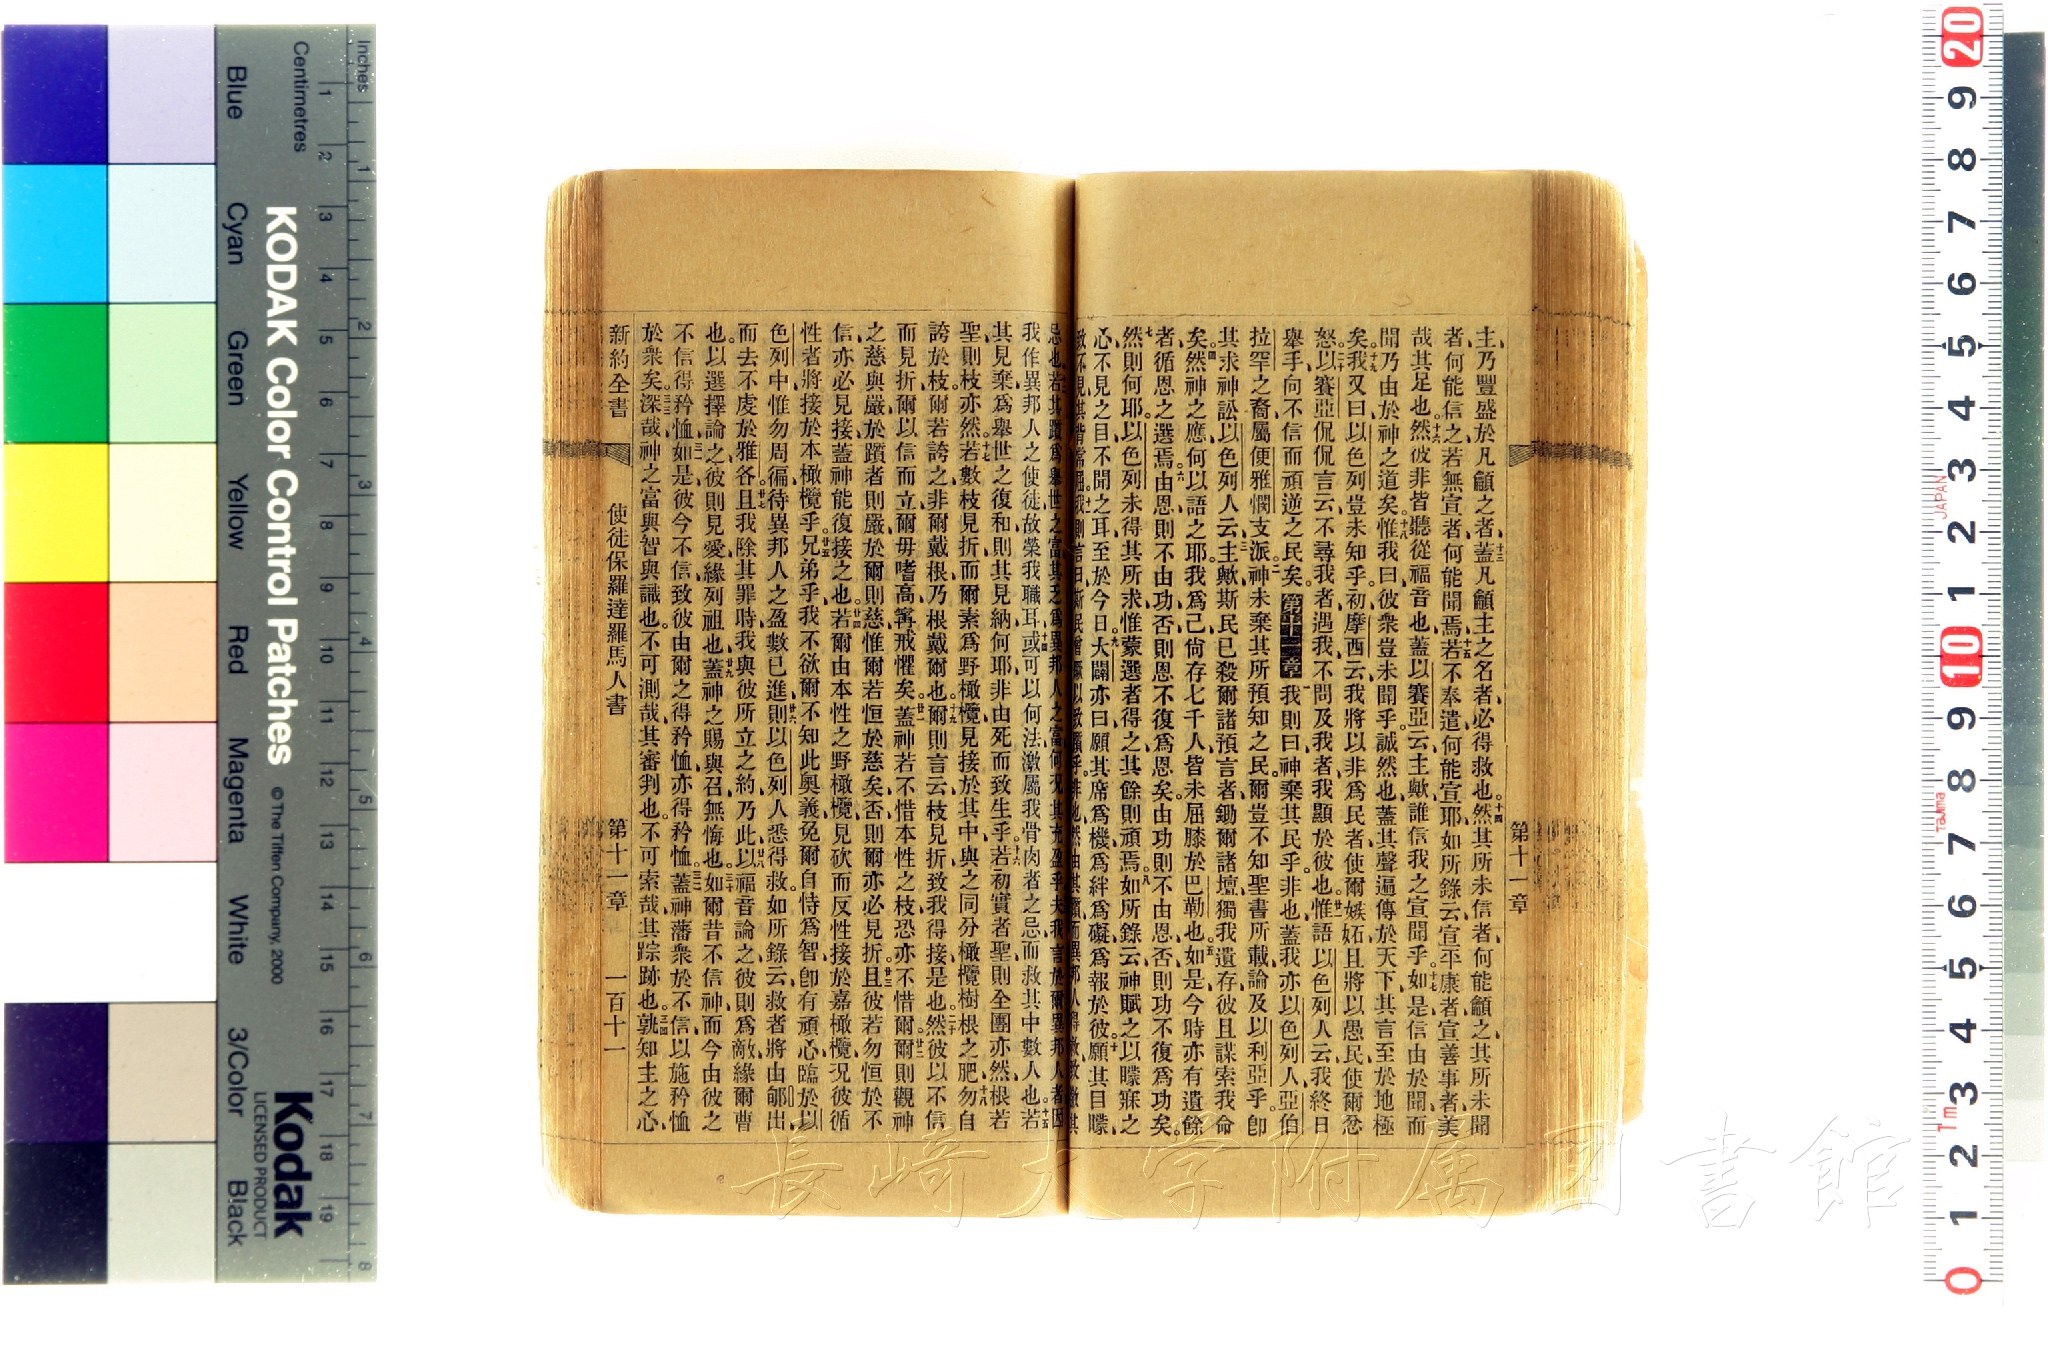 主乃豐盛於凡籲之者蓋凡籲主之名者必得救也然其所未信者何能籲之其所未聞
者何能信之若無宣者何能聞焉若不奉遣何能宣耶如所錄云宣平康者宣善事者美
哉其足也然彼非皆聽從福音也蓋以賽亞云主歟誰信我之宣聞乎如是信由於聞而
聞乃由於神之道矣惟我曰彼衆豈未聞乎誠然也蓋其聲遍傳於天下其言至於地極
矣我又曰以色列豈未知乎初摩西云我將以非爲民者使爾嫉妬且將以愚民使爾忿
怒以賽亞侃侃言云不尋我者遇我不問及我者我顯於彼也惟語以色列人云我終日
舉手向不信而頑逆之民矣
第十一章
我則曰神棄其民乎非也蓋我亦以色列人亞伯
拉罕之裔屬便雅憫支派神未棄其所預知之民爾豈不知聖書所載論及以利亞乎卽
其求神訟以色列人云主歟斯民已殺爾諸預言者鋤爾諸壇獨我遺存彼且謀索我命
矣然神之應何以語之耶我爲己尙存七千人皆未屈膝於巴勒也如是今時亦有遺餘
者循恩之選焉由恩則不由功否則恩不復爲恩矣由功則不由恩否則功不復爲功矣
然則何耶以色列未得其所求惟蒙選者得之其餘則頑焉如所錄云神賦之以矇寐之
心不見之目不聞之耳至於今日大闢亦曰願其席爲機爲絆爲礙爲報於彼願其目矇
忌也若其躓爲舉世之富其乏爲異邦人之富何況其充盈乎夫我言於爾異邦人者因
我作異邦人之使徒故榮我職耳或可以何法激厲我骨肉者之忌而救其中數人也若
其見棄爲舉世之復和則其見納何耶非由死而致生乎若初實者聖則全團亦然根若
聖則枝亦然若數枝見折而爾素爲野橄欖見接於其中與之同分橄欖樹根之肥勿自
誇於枝爾若誇之非爾戴根乃根戴爾也爾則言云枝見折致我得接是也然彼以不信
而見折爾以信而立爾毋嗜高寗戒懼矣蓋神若不惜本性之枝恐亦不惜爾爾則觀神
之慈與嚴於躓者則嚴於爾則慈惟爾若恒於慈矣否則爾亦必見折且彼若勿恒於不
信亦必見接蓋神能復接之也若爾由本性之野橄欖見砍而反性接於嘉橄欖況彼循
性者將接於本橄欖乎兄弟乎我不欲爾不知此奧義免爾自恃爲智卽有頑心臨於以
色列中惟勿周徧待異邦人之盈數已進則以色列人悉得救如所錄云救者將由郇出
而去不虔於雅各且我除其罪時我與彼所立之約乃此以福音論之彼則爲敵緣爾曹
也以選擇論之彼則見愛緣列祖也蓋神之賜與召無悔也如爾昔不信神而今由彼之
不信得矜恤如是彼今不信致彼由爾之得矜恤亦得矜恤蓋神藩衆於不信以施矜恤
於衆矣深哉神之富與智與識也不可測哉其審判也不可索哉其踪跡也孰知主之心
新約全書
使徒保羅達羅馬人書
第十一章
一百十一
第十一章
Inches
Centimetres
KODAK Color Control Patches
© The Tiffen Company, 2000
Kodak
LICENSED PRODUCT
Blue
Cyan
Green
Yellow
Red
Magenta
White
3/Color
Black
JAPAN
Tajima
長崎大学附属図書館